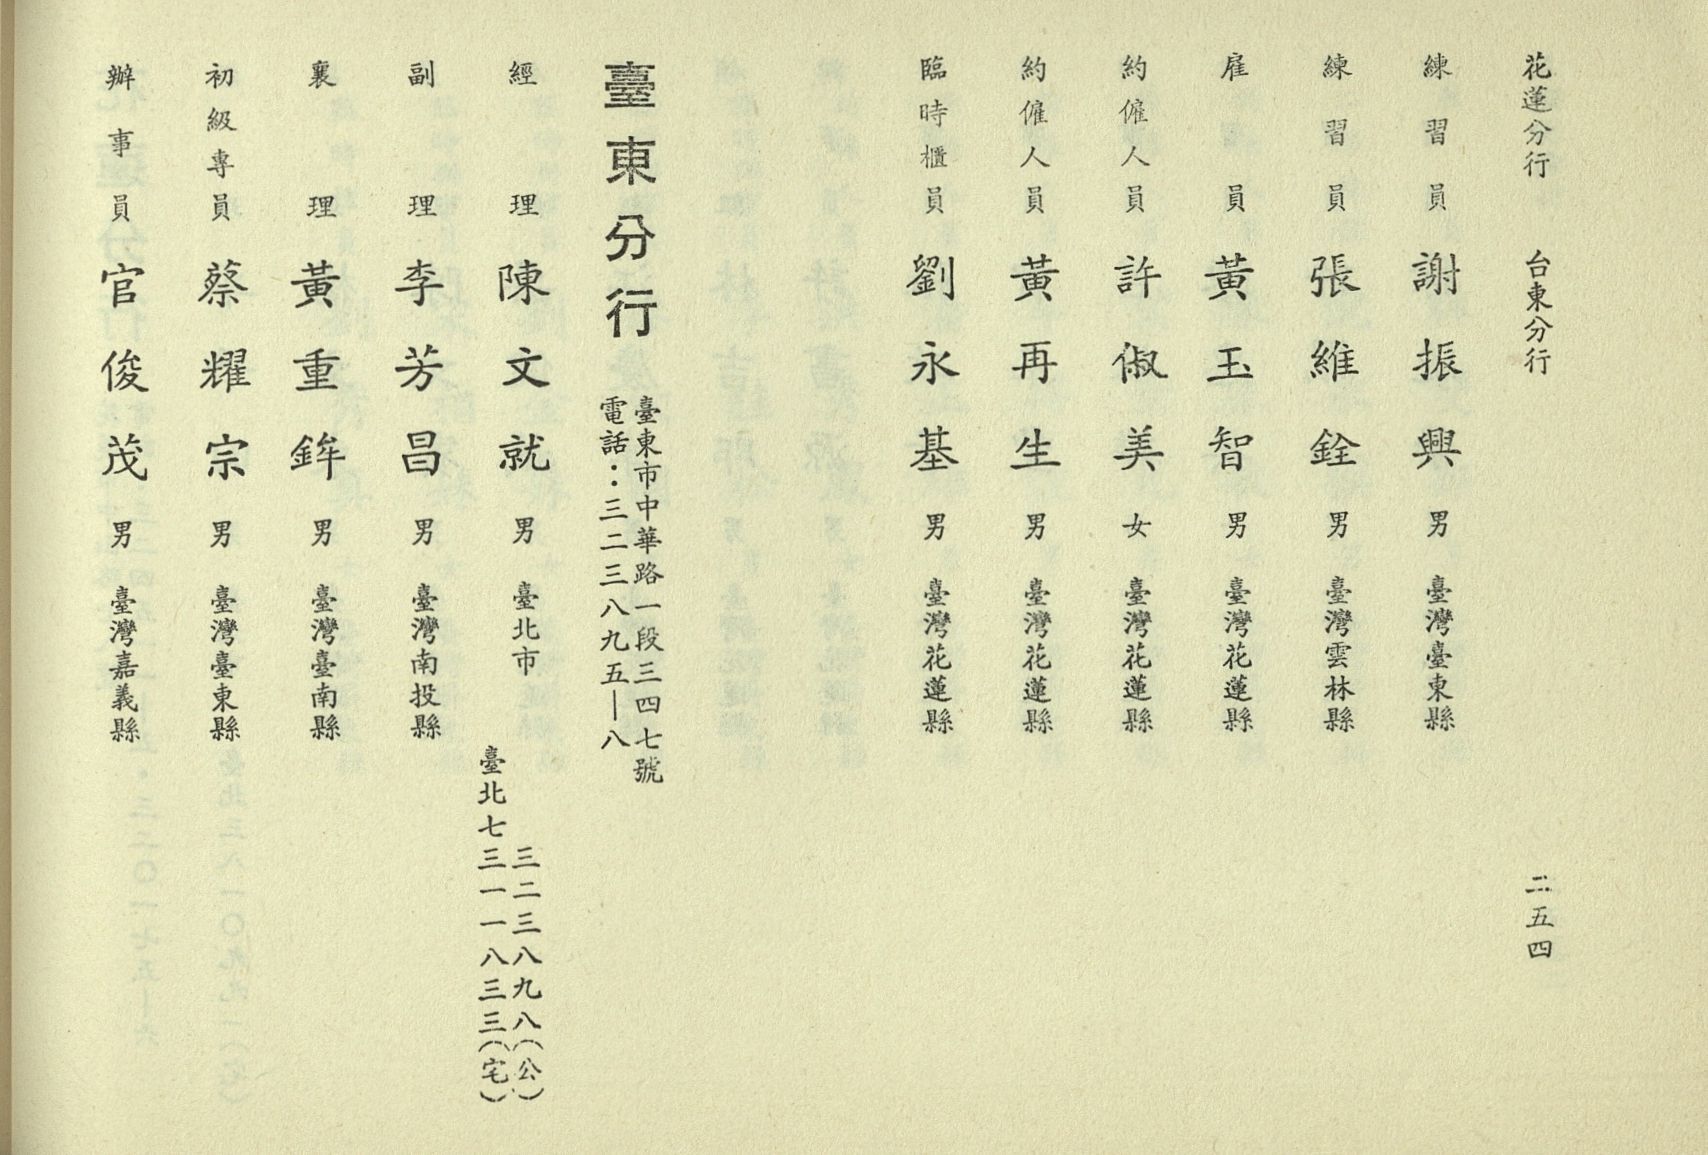 花蓮分行 台東分行 二五四
練習員 謝振興 男 臺灣臺東縣
練習員 張維銓 男 臺灣雲林縣
雇員 黃玉智 男 臺灣花蓮縣
約僱人員 許俶美 女 臺灣花蓮縣
約僱人員 黃再生 男 臺灣花蓮縣
臨時櫃員 劉永基 男 臺灣花蓮縣
臺東分行
臺東市中華路一段三四七號
電話：三二三八九五—八
經理 陳文就 男 臺北市 三二三八九八（公）
臺北七三一一八三三（宅）
副理 李芳昌 男 臺灣南投縣
襄理 黃重鉾 男 臺灣臺南縣
初級專員 蔡耀宗 男 臺灣臺東縣
辦事員 官俊茂 男 臺灣嘉義縣